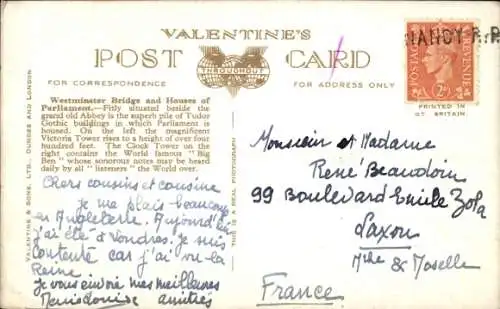 VALENTINE'S
POST CARD
THROUGHOUT
FOR CORRESPONDENCE
FOR ADDRESS ONLY
Westminster Bridge and Houses of
Parliament.—Fitly situated beside the
grand old Abbey is the superb pile of Tudor
Gothic buildings in which Parliament is
housed. On the left the magnificent
Victoria Tower rises to a height of over four
hundred feet. The Clock Tower on the
right contains the World famous "Big
Ben" whose sonorous notes may be heard
daily by all "listeners" the World over.
Chers cousins et cousine
je me plais beaucoup
en Angleterre. Aujourd'hui
j'ai été à Londres. Je suis
contente car j'ai vu la
Reine
Je vous envoie mes meilleures
amitiés
VALENTINE & SONS, LTD., DUNDEE AND LONDON
THIS IS A REAL PHOTOGRAPH
NANCY R.P.
POSTAGE REVENUE
2D
PRINTED IN
GT. BRITAIN
Monsieur et Madame
René Beaudoin
99 Boulevard Emile Zola
Laxou
Mthe & Moselle
France